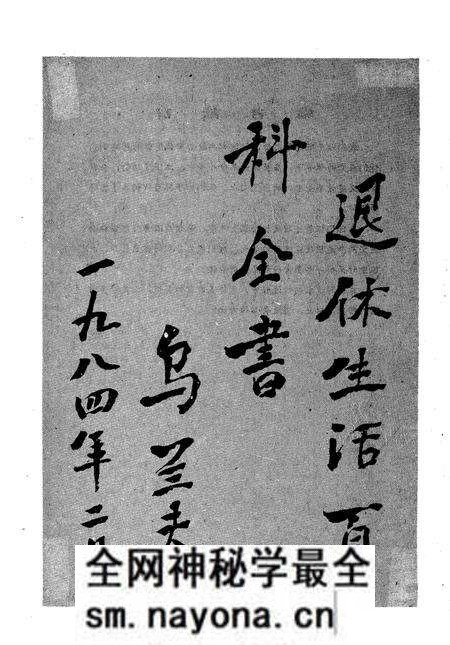 退休生活百
科全書
乌兰夫
一九八四年二月
全网神秘学最全
sm.nayona.cn